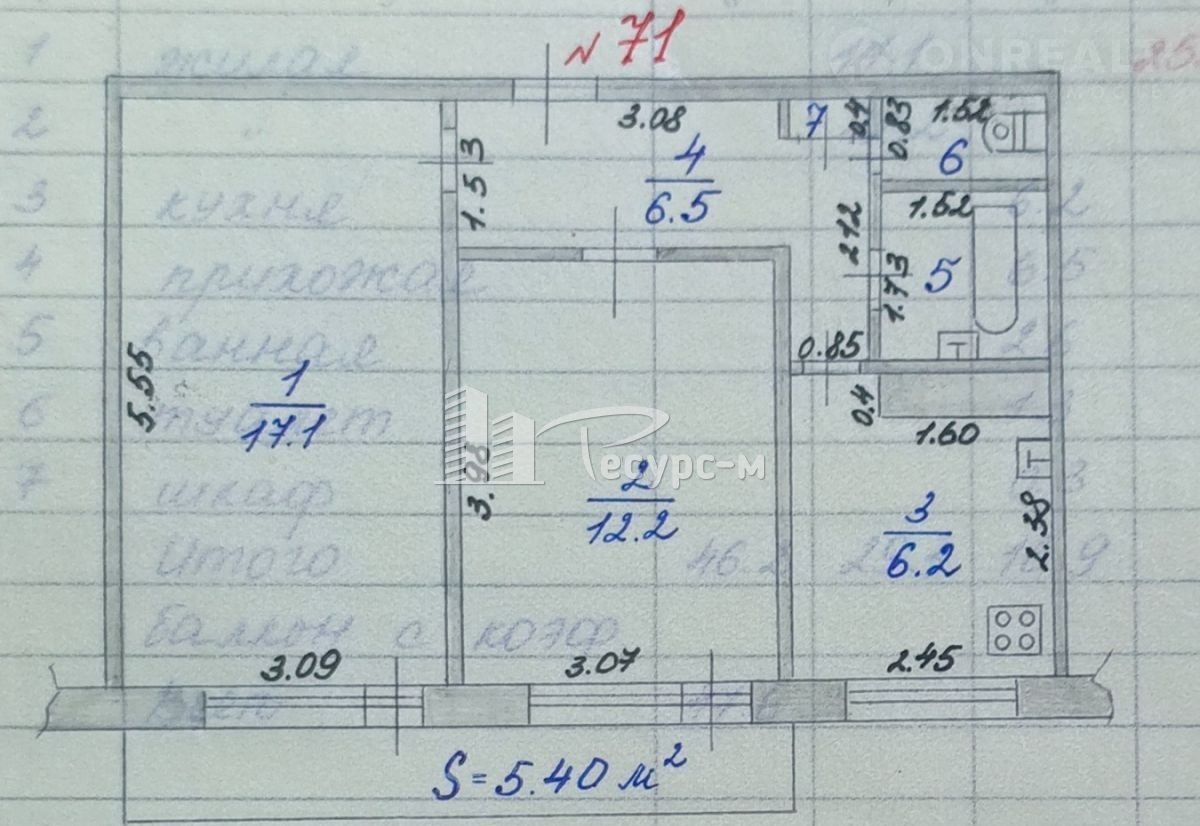 № 71
ONREALT
1 жилая 17.1
2 "
3 кухня 6.2
4 прихожая 6.5
5 ванная 2.6
6 туалет 1.3
7 шкаф
Итого
балкон с коэф
3.08
7
0.4
0.83
1.52
6
1.53
4
6.5
2.12
1.52
1.73
5
0.85
5.55
1
17.1
0.4
1.60
Ресурс-м
3.98
2
12.2
3
6.2
2.38
3.09
3.07
2.45
S=5.40 м²